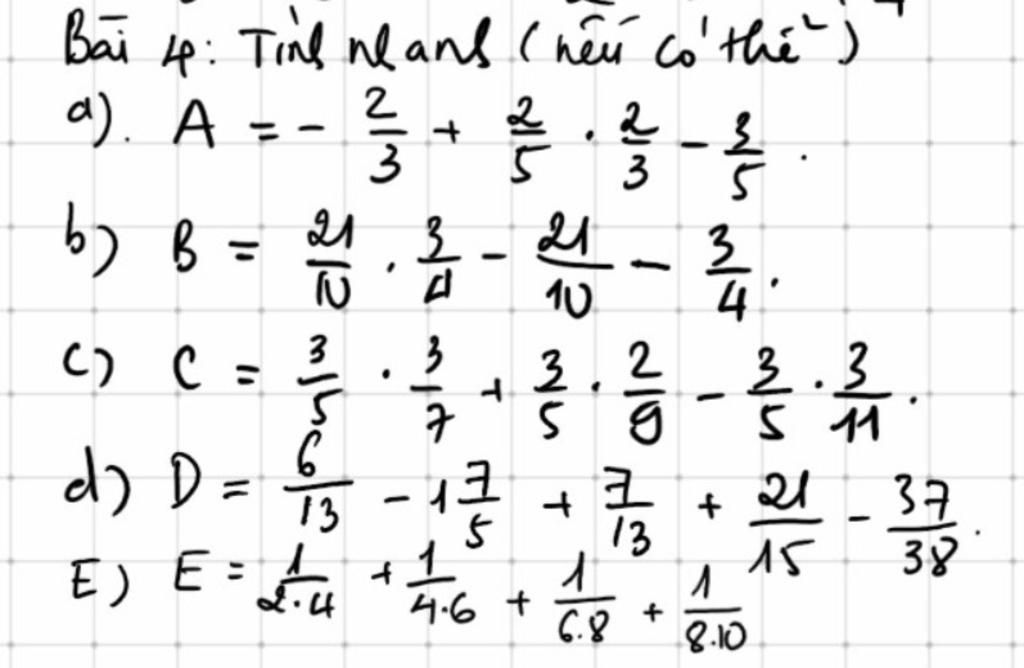 Bài 4: Tính nhanh (nếu có thể)
a). A = - 2/3 + 2/5 . 2/3 - 3/5 .
b) B = 21/10 . 3/4 - 21/10 - 3/4 .
c) C = 3/5 . 3/7 + 3/5 . 2/9 - 3/5 . 3/11 .
d) D = 6/13 - 1 7/5 + 7/13 + 21/15 - 37/38 .
E) E = 1/2.4 + 1/4.6 + 1/6.8 + 1/8.10